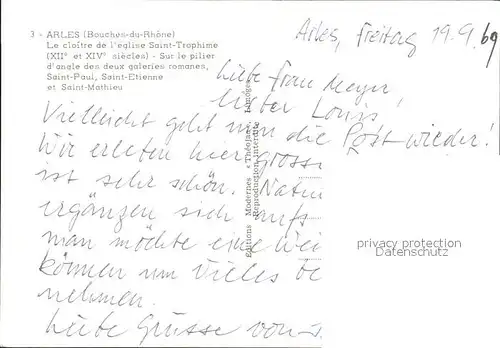 3 - ARLES (Bouches-du-Rhône)
Le cloître de l'eglise Saint-Trophime
(XIIe et XIVe siècles) - Sur le pilier
d'angle des deux galeries romanes,
Saint-Paul, Saint-Etienne
et Saint-Mathieu
Arles, Freitag 19.9.69
Liebe Frau Meyer,
Lieber Louis!
Vielleicht geht nun die Post wieder!
Wir erleben hier gross
ist sehr schön. Natu
ergänzen sich aufs
man möchte eine Wei
können um vieles be
nehmen.
Liebe Grüsse von
Editions Modernes « Théojac », Limoges
Reproduction interdite
privacy protection
Datenschutz